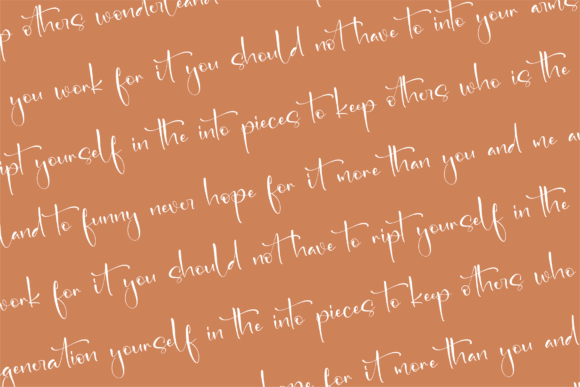 p others wonderland
you work for it you should not have to into your arms
ript yourself in the into pieces to keep others who is the
land to funny never hope for it more than you and me a
work for it you should not have to ript yourself in the
generation yourself in the into pieces to keep others who
hope for it more than you and